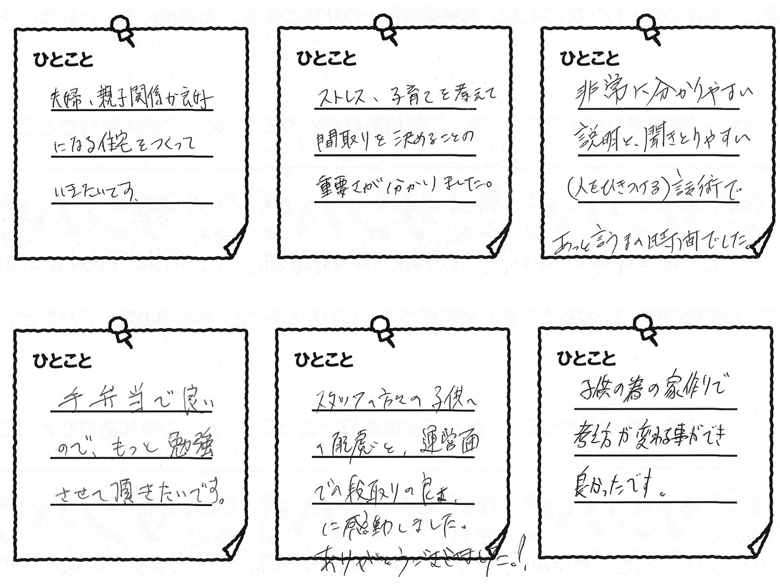 ひとこと
夫婦、親子関係が良好
になる住宅をつくって
いきたいです。
ひとこと
ストレス、子育てを考えて
間取りを決めることの
重要さが(分かり)ました。
ひとこと
非常に分かりやすい
説明と、聞きとりやすい
(人をひきつける)話術で
あっと言うまの時間でした。
ひとこと
手弁当で良い
ので、もっと勉強
させて頂きたいです。
ひとこと
スタッフの方々の子供へ
の配慮と、運営面
での段取りの良さ、
に感動しました。
ありがとうございました。!
ひとこと
子供の為の家作りで
考え方が変わる事ができ
良かったです。